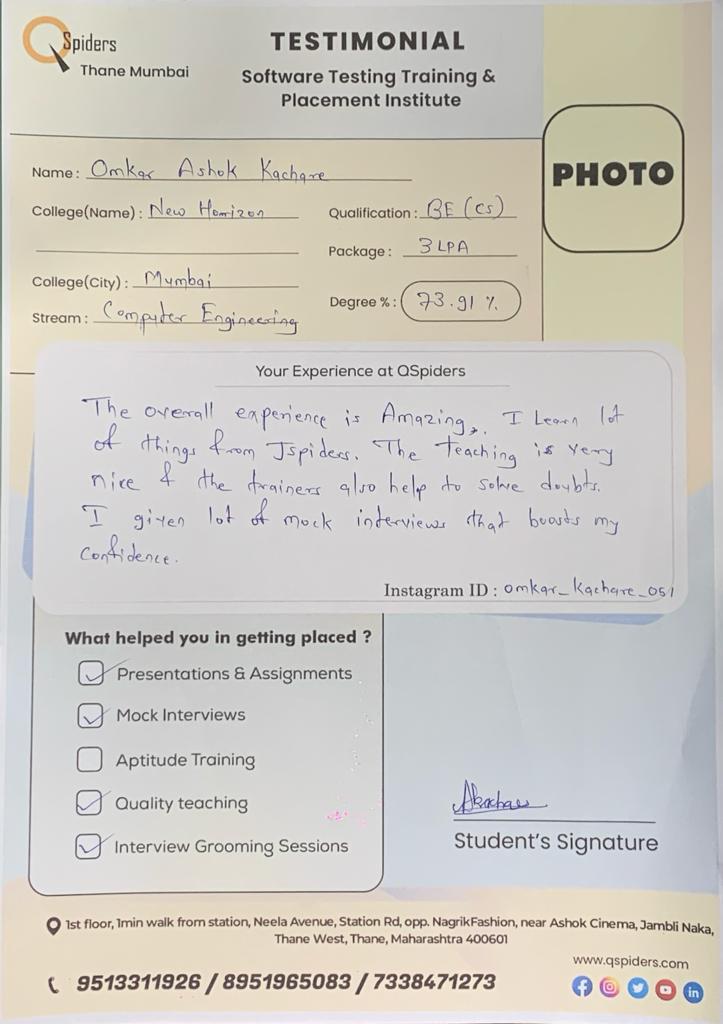 QSpiders
Thane Mumbai
TESTIMONIAL
Software Testing Training &
Placement Institute
PHOTO
Name: Omkar Ashok Kachare
College(Name): New Horizon
Qualification: BE (CS)
Package: 3 LPA
College(City): Mumbai
Degree %: 73.91 %
Stream: Computer Engineering
Your Experience at QSpiders
The overall experience is Amazing. I Learn lot
of things from Jspiders. The teaching is very
nice & the trainers also help to solve doubts.
I given lot of mock interviews that boosts my
confidence.
Instagram ID: omkar_kachare_051
What helped you in getting placed ?
Presentations & Assignments
Mock Interviews
Aptitude Training
Quality teaching
Interview Grooming Sessions
Student's Signature
1st floor, 1min walk from station, Neela Avenue, Station Rd, opp. NagrikFashion, near Ashok Cinema, Jambli Naka,
Thane West, Thane, Maharashtra 400601
www.qspiders.com
9513311926 / 8951965083 / 7338471273